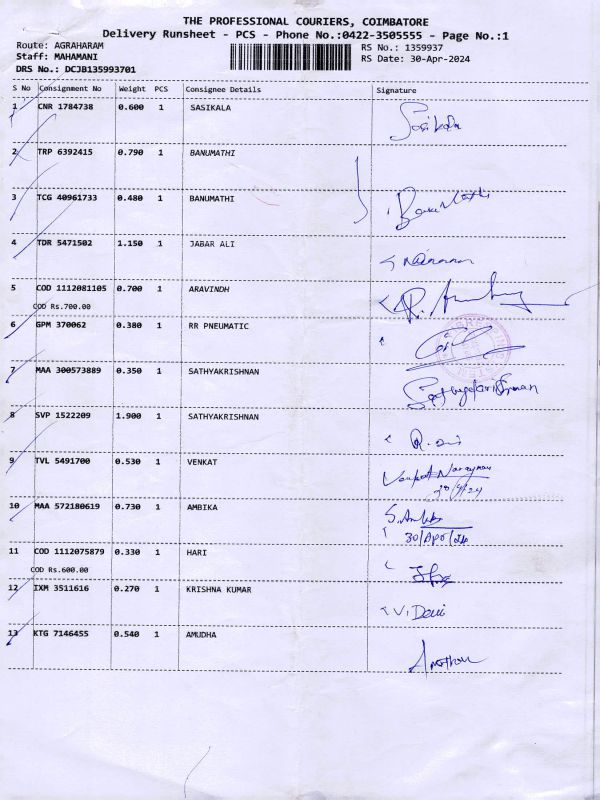 THE PROFESSIONAL COURIERS, COIMBATORE
Delivery Runsheet - PCS - Phone No.:0422-3505555 - Page No.:1
Route: AGRAHARAM RS No.: 1359937
Staff: MAHAMANI RS Date: 30-Apr-2024
DRS No.: DCJB135993701
S No Consignment No Weight PCS Consignee Details Signature
1 CNR 1784738 0.600 1 SASIKALA
Sasikala
2 TRP 6392415 0.790 1 BANUMATHI
3 TCG 40961733 0.480 1 BANUMATHI
Banumathi
4 TDR 5471502 1.150 1 JABAR ALI
5 COD 1112081105 0.700 1 ARAVINDH
COD Rs.700.00
6 GPM 370062 0.380 1 RR PNEUMATIC
7 MAA 300573889 0.350 1 SATHYAKRISHNAN
8 SVP 1522209 1.900 1 SATHYAKRISHNAN
9 TVL 5491700 0.530 1 VENKAT
Venkat Narayanan
10 MAA 572180619 0.730 1 AMBIKA
30/Apr/24
11 COD 1112075879 0.330 1 HARI
COD Rs.600.00
12 IXM 3511616 0.270 1 KRISHNA KUMAR
V. Devi
13 KTG 7146455 0.540 1 AMUDHA